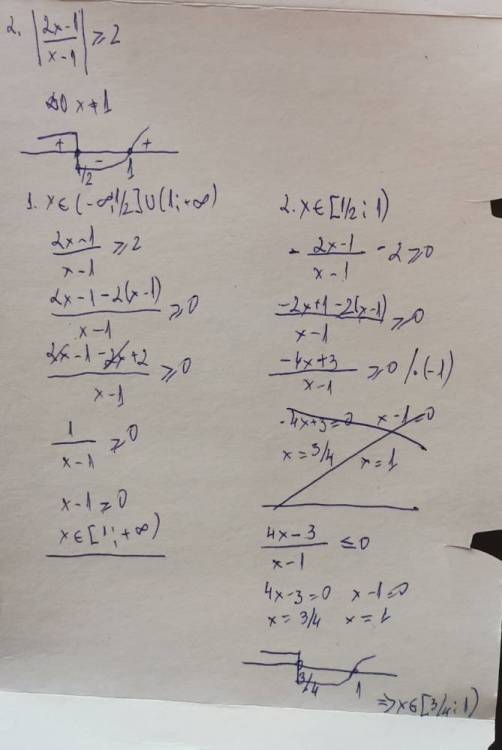 2. |(2x-1)/(x-1)| ⩾ 2
DO x≠1
+ - +
1/2 1
1. x∈(-∞;1/2]∪(1;+∞)
(2x-1)/(x-1) ⩾ 2
(2x-1-2(x-1))/(x-1) ⩾ 0
(2x-1-2x+2)/(x-1) ⩾ 0
1/(x-1) ⩾ 0
x-1 ⩾ 0
x∈[1;+∞)
2. x∈[1/2;1)
-(2x-1)/(x-1) -2 ⩾ 0
(-2x+1-2(x-1))/(x-1) ⩾ 0
(-4x+3)/(x-1) ⩾ 0 /·(-1)
-4x+3=0 x-1=0
x=3/4 x=1
(4x-3)/(x-1) ≤ 0
4x-3=0 x-1=0
x=3/4 x=1
3/4 1
⇒ x∈[3/4;1)